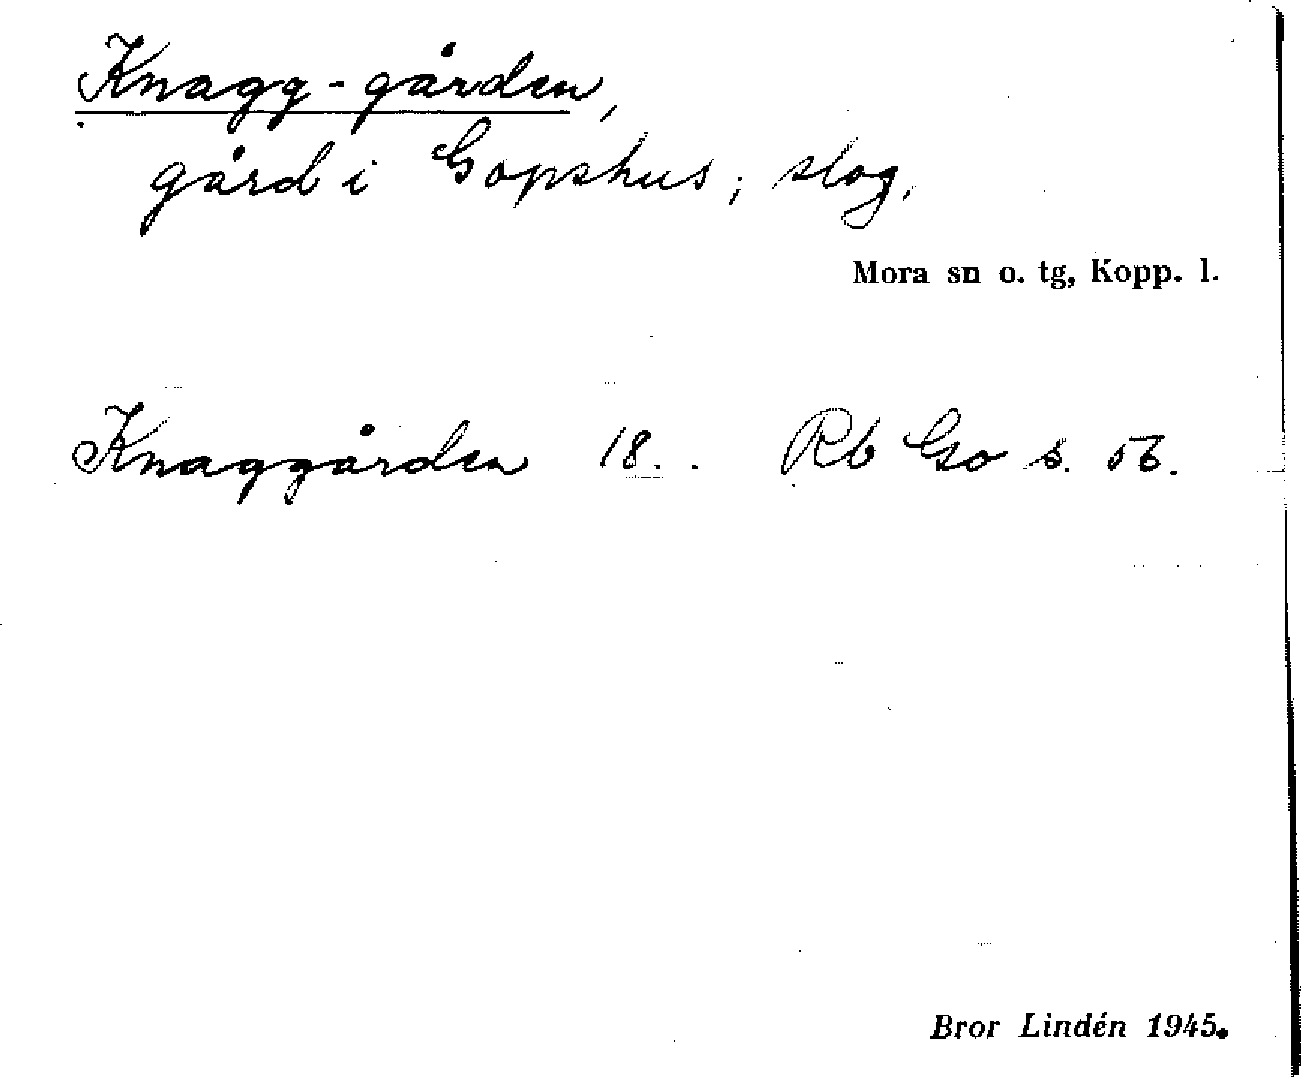 Knagg-gården,
gård i Gopshus; slog.
Mora sn o. tg, Kopp. l.
Knaggården 18.. Rb Go s. 56.
Bror Lindén 1945.